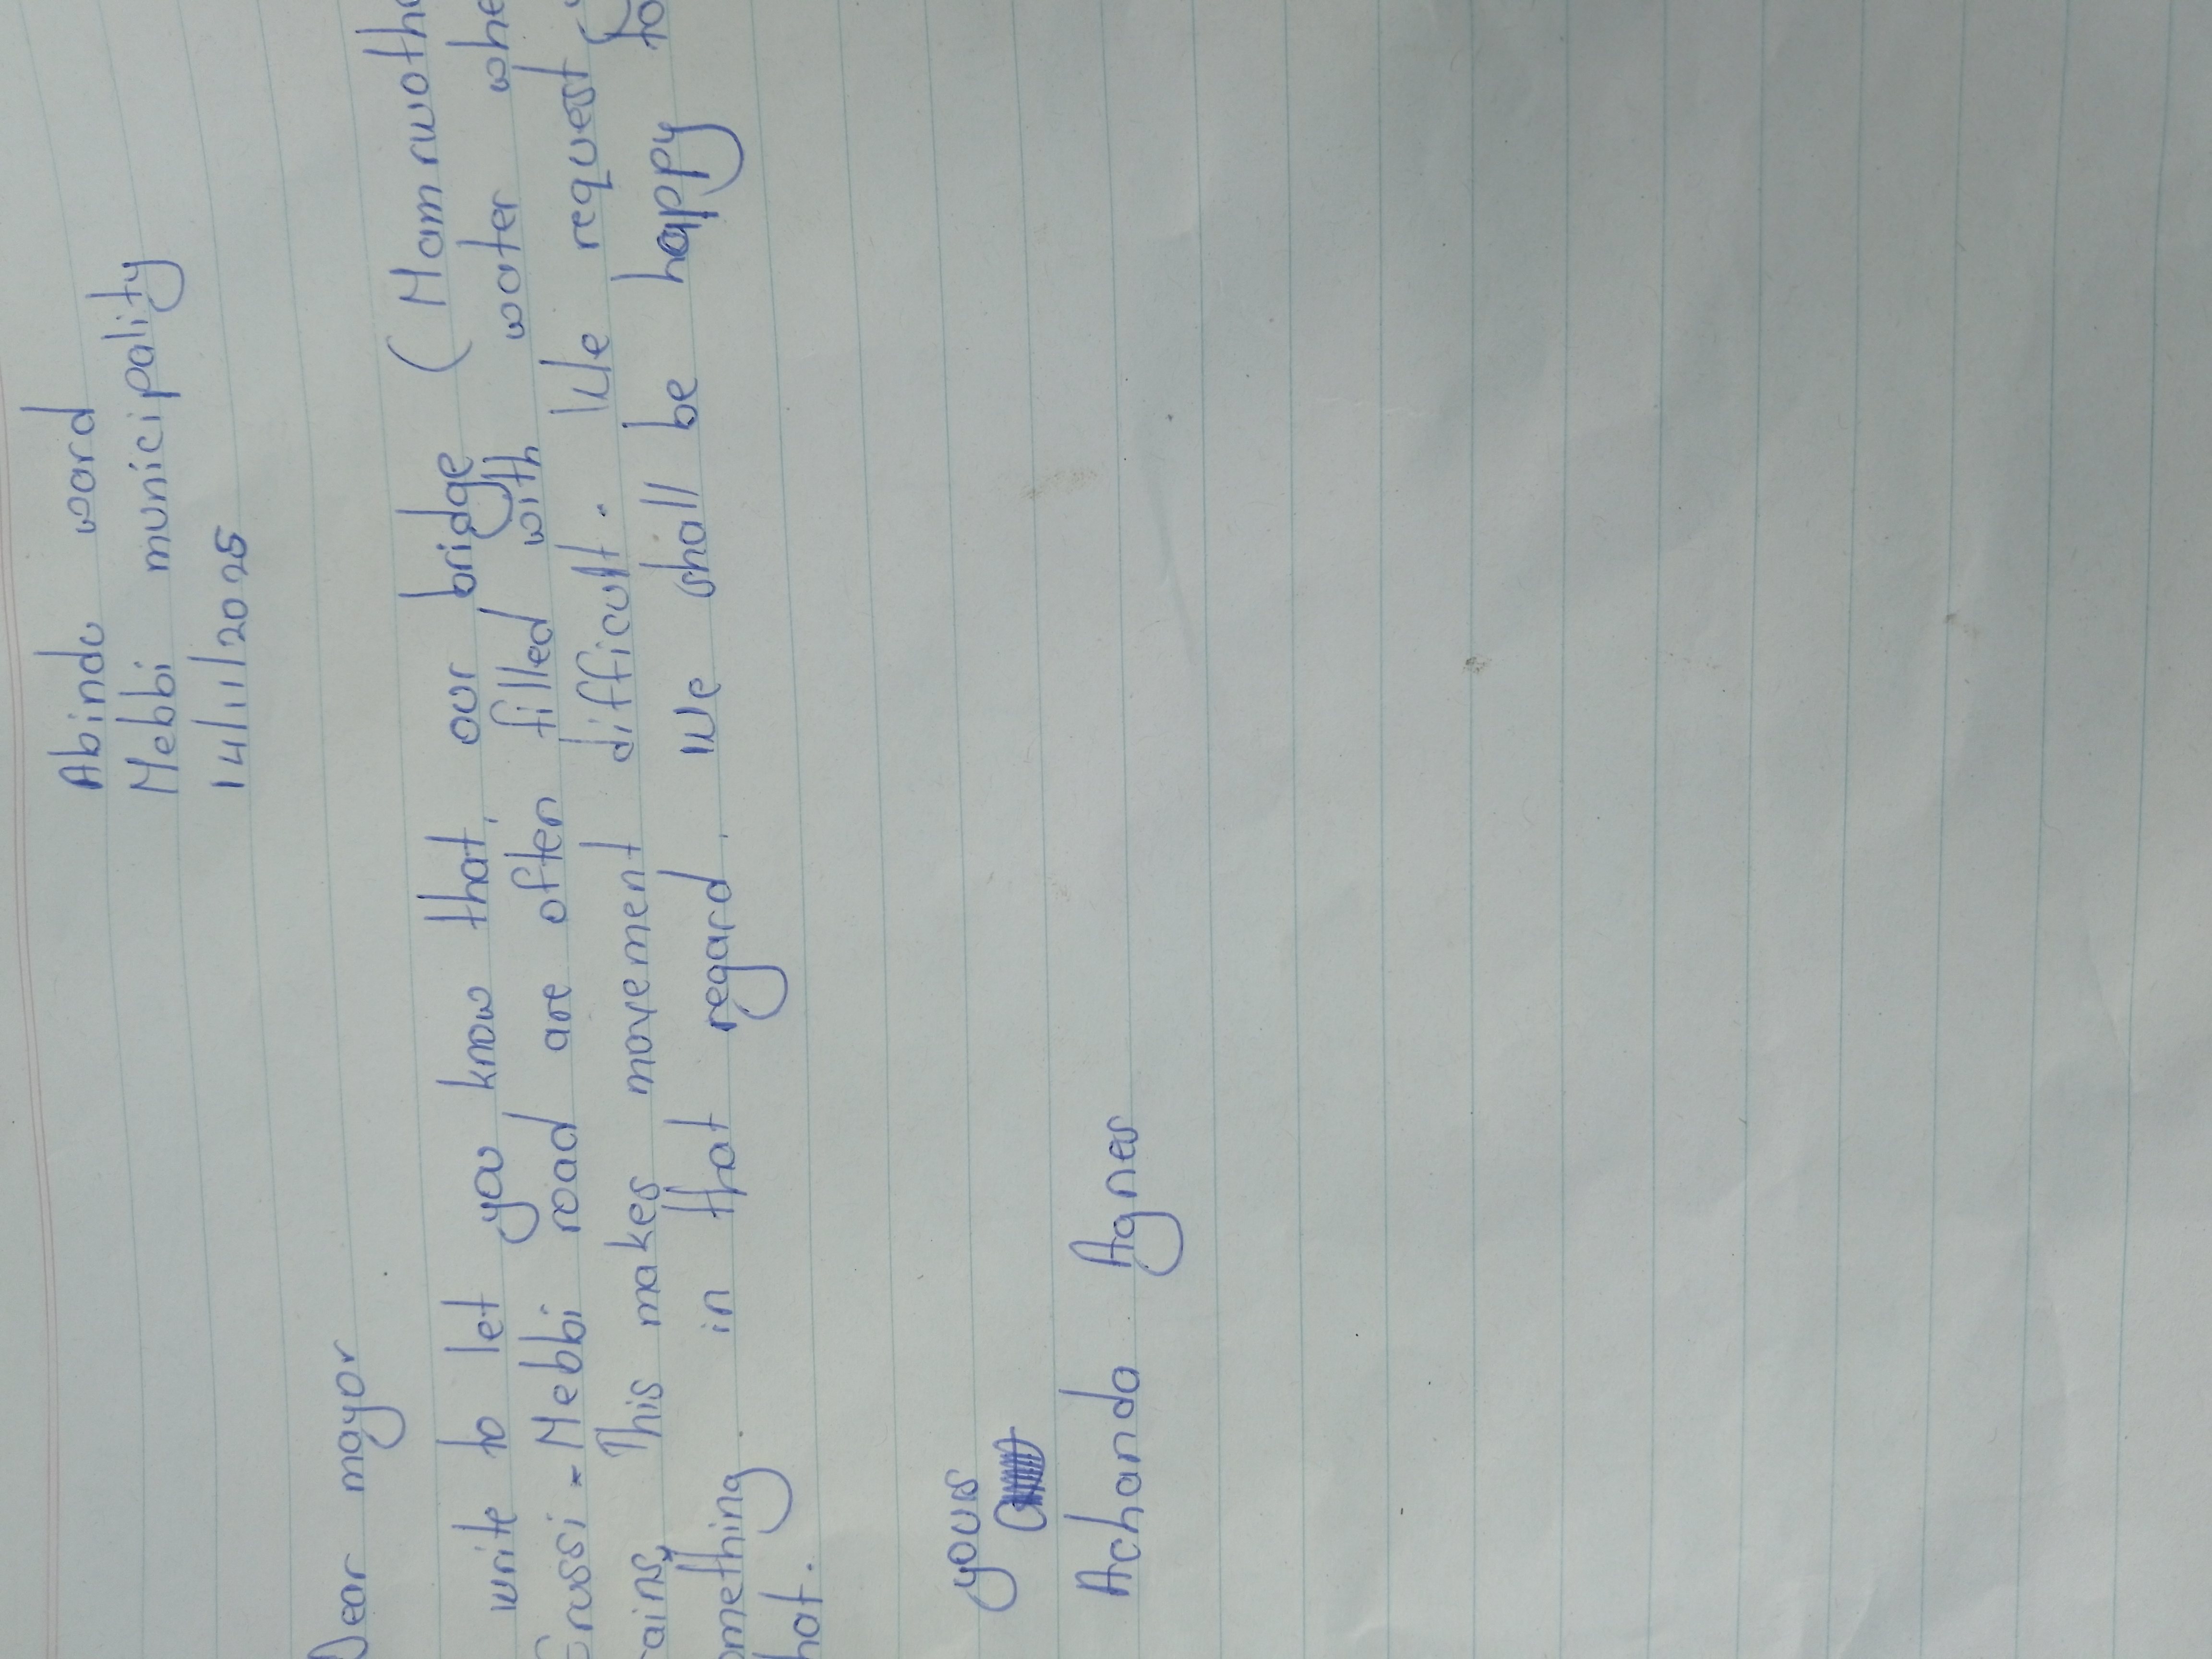 Abindu ward
Nebbi municipality
14/11/2025
Dear mayor
write to let you know that, our bridge (Namrwotho
Erussi-Nebbi road are often filled with water whe
rains, This makes movement difficult. We request
omething in that regard, we shall be happy to
hat.
yours
Achanda Agnes